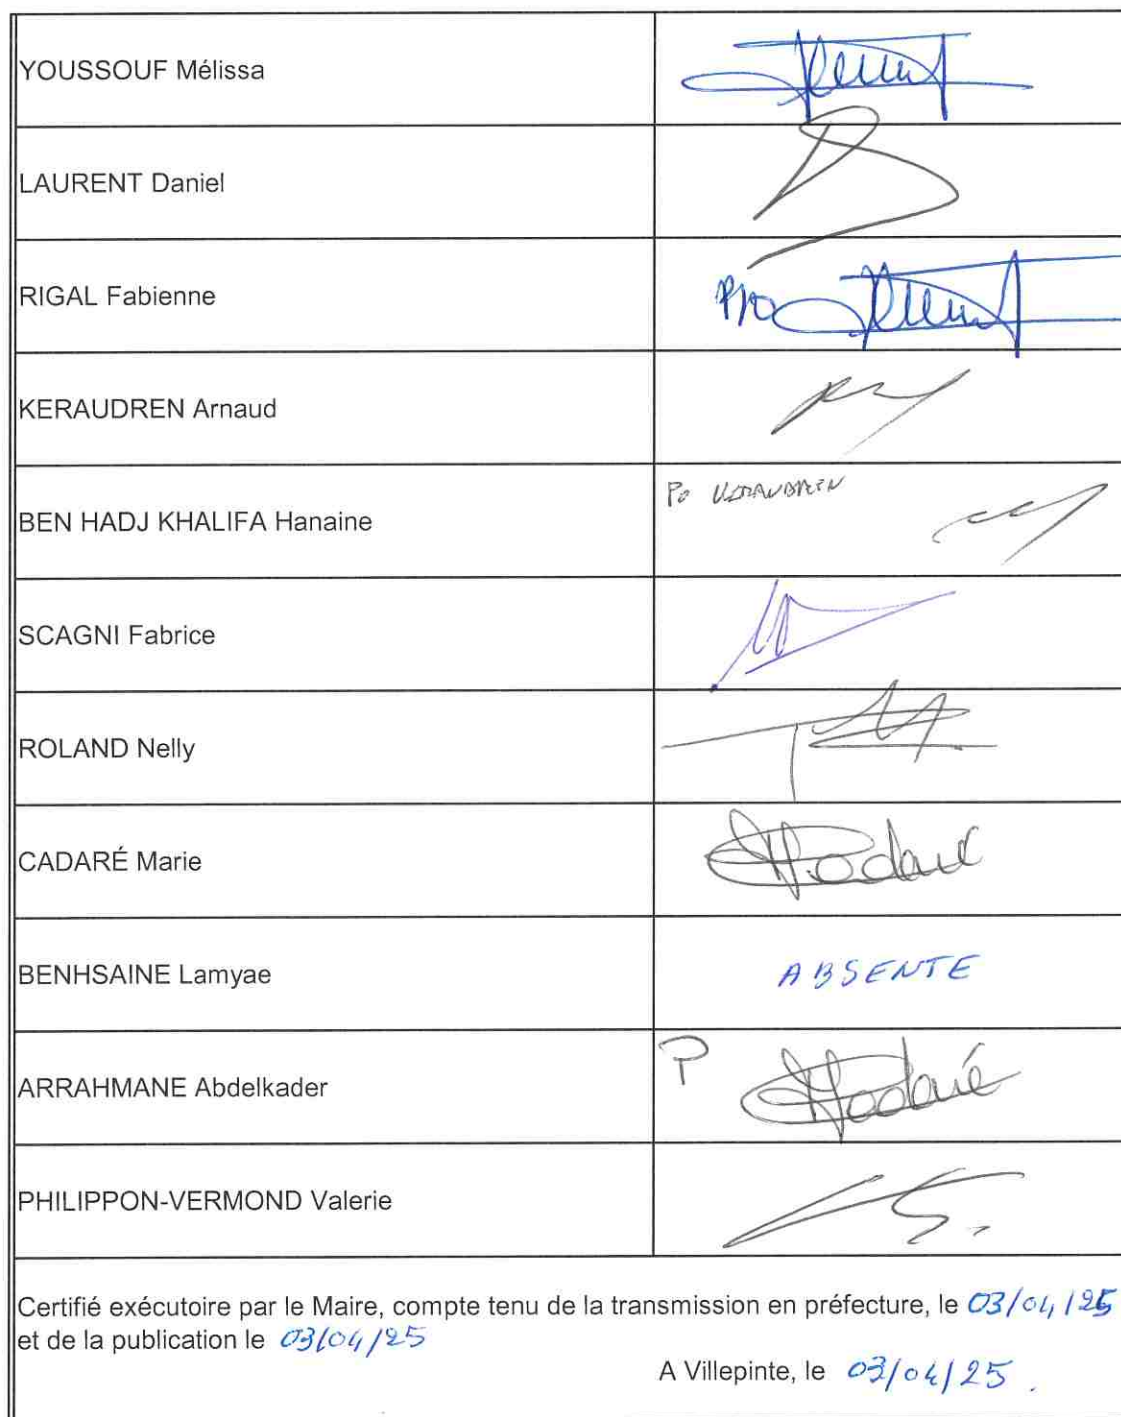 YOUSSOUF Mélissa
LAURENT Daniel
RIGAL Fabienne
P/o
KERAUDREN Arnaud
BEN HADJ KHALIFA Hanaine
Po KERAUDREN
SCAGNI Fabrice
ROLAND Nelly
CADARÉ Marie
Cadaré
BENHSAINE Lamyae
ABSENTE
ARRAHMANE Abdelkader
P Cadaré
PHILIPPON-VERMOND Valerie
Certifié exécutoire par le Maire, compte tenu de la transmission en préfecture, le 03/04/25
et de la publication le 03/04/25
A Villepinte, le 03/04/25.